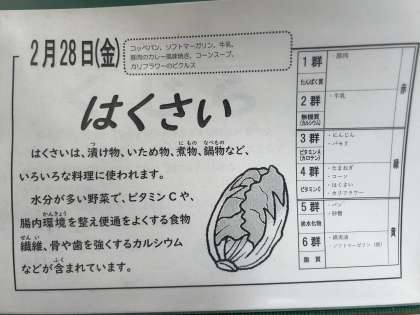 2月28日(金)
コッペパン、ソフトマーガリン、牛乳、
豚肉のカレー風味焼き、コーンスープ、
カリフラワーのピクルス
はくさい
はくさいは、漬け物、いため物、煮物、鍋物など、
つ
にもの
なべもの
いろいろな料理に使われます。
水分が多い野菜で、ビタミンCや、
腸内環境を整え便通をよくする食物
かんきょう
繊維、骨や歯を強くするカルシウム
せんい
などが含まれています。
ふく
1群
たんぱく質
・豚肉
2群
無機質
(カルシウム)
・牛乳
赤
3群
ビタミンA
(カロテン)
・にんじん
・パセリ
4群
ビタミンC
・たまねぎ
・コーン
・はくさい
・カリフラワー
緑
5群
炭水化物
・パン
・砂糖
6群
脂質
・ソフトマーガリン
黄